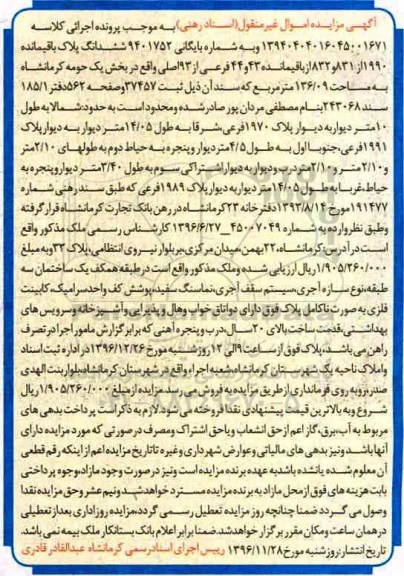 آگهی مزایده اموال غیرمنقول(اسناد رهنی) به موجب پرونده اجرائی کلاسه
۱۳۹۴۰۴۰۴۰۱۶۰۴۵۰۰۱۶۷۱ وبه شماره بایگانی ۹۴۰۱۷۵۲ ششدانگ پلاک باقیمانده
۱۹۹۰ از ۸۳۱ و۸۳۲ از باقیمانده ۴۳ و۴۴ فرعی از ۹۳اصلی واقع در بخش یک حومه کرمانشاه
به مساحت ۱۳۶/۰۹ مترمربع که سند آن ذیل ثبت ۳۷۴۵۷ وصفحه ۵۶۲ دفتر ۱۸۵/۱
سند ۲۴۳۰۶۸ بنام مصطفی مردان پور صادر شده ومحدود است به حدود:شمالا به طول
۱۰متر دیوار به دیوار پلاک ۱۹۷۰ فرعی،شرقا به طول ۱۴/۰۵متر دیوار به دیوار پلاک
۱۹۹۱ فرعی،جنوبا اول به طول ۴/۵متر دیوار و پنجره به حیاط دوم به طولهای ۲/۱۰متر
و ۲/۱۰متر و ۲/۱۰متر درب ودیوار به دیوار اشتراکی سوم به طول ۳/۴۰متر دیوار وپنجره به
حیاط،غربا به طول ۱۴/۰۵متر دیوار به دیوار پلاک ۱۹۸۹ فرعی که طبق سند رهنی شماره
۱۹۱۴۷۷ مورخ ۱۳۹۲/۸/۱۴ دفترخانه ۲۳ کرمانشاه در رهن بانک تجارت کرمانشاه قرار گرفته
وطبق نظر وارده به شماره ۴۵۰۰۷۰۴۹_۱۳۹۶/۶/۲۷ کارشناس رسمی ملک مذکور واقع
است در آدرس:کرمانشاه،۲۲بهمن،میدان مرکزی،بر بلوار نیروی انتظامی،پلاک ۳۲ وبه مبلغ
۱/۹۰۵/۲۶۰/۰۰۰ ریال ارزیابی شده وملک مذکور واقع است در طبقه همکف یک ساختمان سه
طبقه،نوع سازه آجری،سیستم سقف آجری،نماسنگ سفید،پوشش کف واحد سرامیک،کابینت
فلزی به صورت ناکامل پلاک فوق دارای دو اتاق خواب وهال و پذیرایی و آشپزخانه وسرویس های
بهداشتی،قدمت ساخت بالای ۲۰سال،درب و پنجره آهنی که برابر گزارش مامور اجرا در تصرف
راهن می باشد.پلاک فوق از ساعت ۹الی ۱۲ روز شنبه مورخ ۱۳۹۶/۱۲/۲۶ در اداره ثبت اسناد
واملاک ناحیه یک شهرستان کرمانشاه،شعبه اجرا،واقع در شهرستان کرمانشاه،بلوار بنت الهدی
صدر،روبه روی فرمانداری از طریق مزایده به فروش می رسد.مزایده از مبلغ ۱/۹۰۵/۲۶۰/۰۰۰ ریال
شروع وبه بالاترین قیمت پیشنهادی نقدا فروخته می شود.لازم به ذکر است پرداخت بدهی های
مربوط به آب،برق،گاز اعم از حق انشعاب ویا حق اشتراک ومصرف در صورتی که مورد مزایده دارای
آنها باشد ونیز بدهی های مالیاتی وعوارض شهرداری وغیره تا تاریخ مزایده اعم از اینکه رقم قطعی
آن معلوم شده یا نشده باشد به عهده برنده مزایده است ونیز در صورت وجود مازاد،وجوه پرداختی
بابت هزینه های فوق از محل مازاد به برنده مزایده مسترد خواهد شد.ونیم عشر وحق مزایده نقدا
وصول می گردد ضمنا چنانچه روز مزایده تعطیل رسمی گردد،مزایده روز اداری بعد از تعطیلی
در همان ساعت ومکان مقرر برگزار خواهد شد.ضمنا برابر اعلام بانک بستانکار ملک بیمه نمی باشد.
تاریخ انتشار:روز شنبه مورخ ۱۳۹۶/۱۱/۲۸ رییس اجرای اسناد رسمی کرمانشاه عبدالقادر قادری